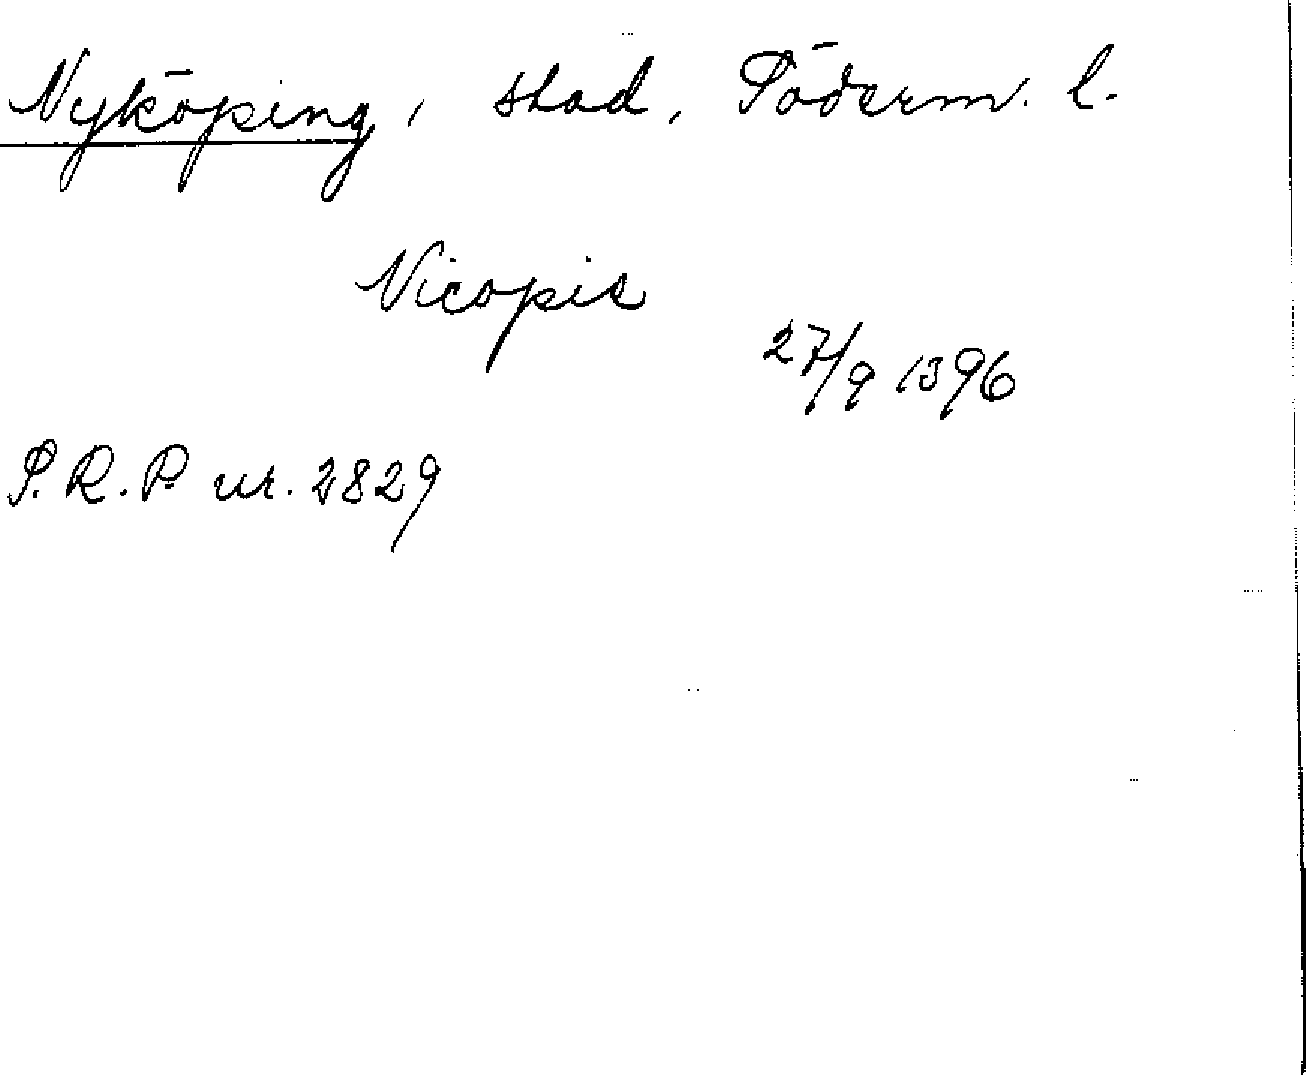 Nyköping, stad, Söderm. l.
Nicopis
27/9 1396
S.R.P. nr. 2829